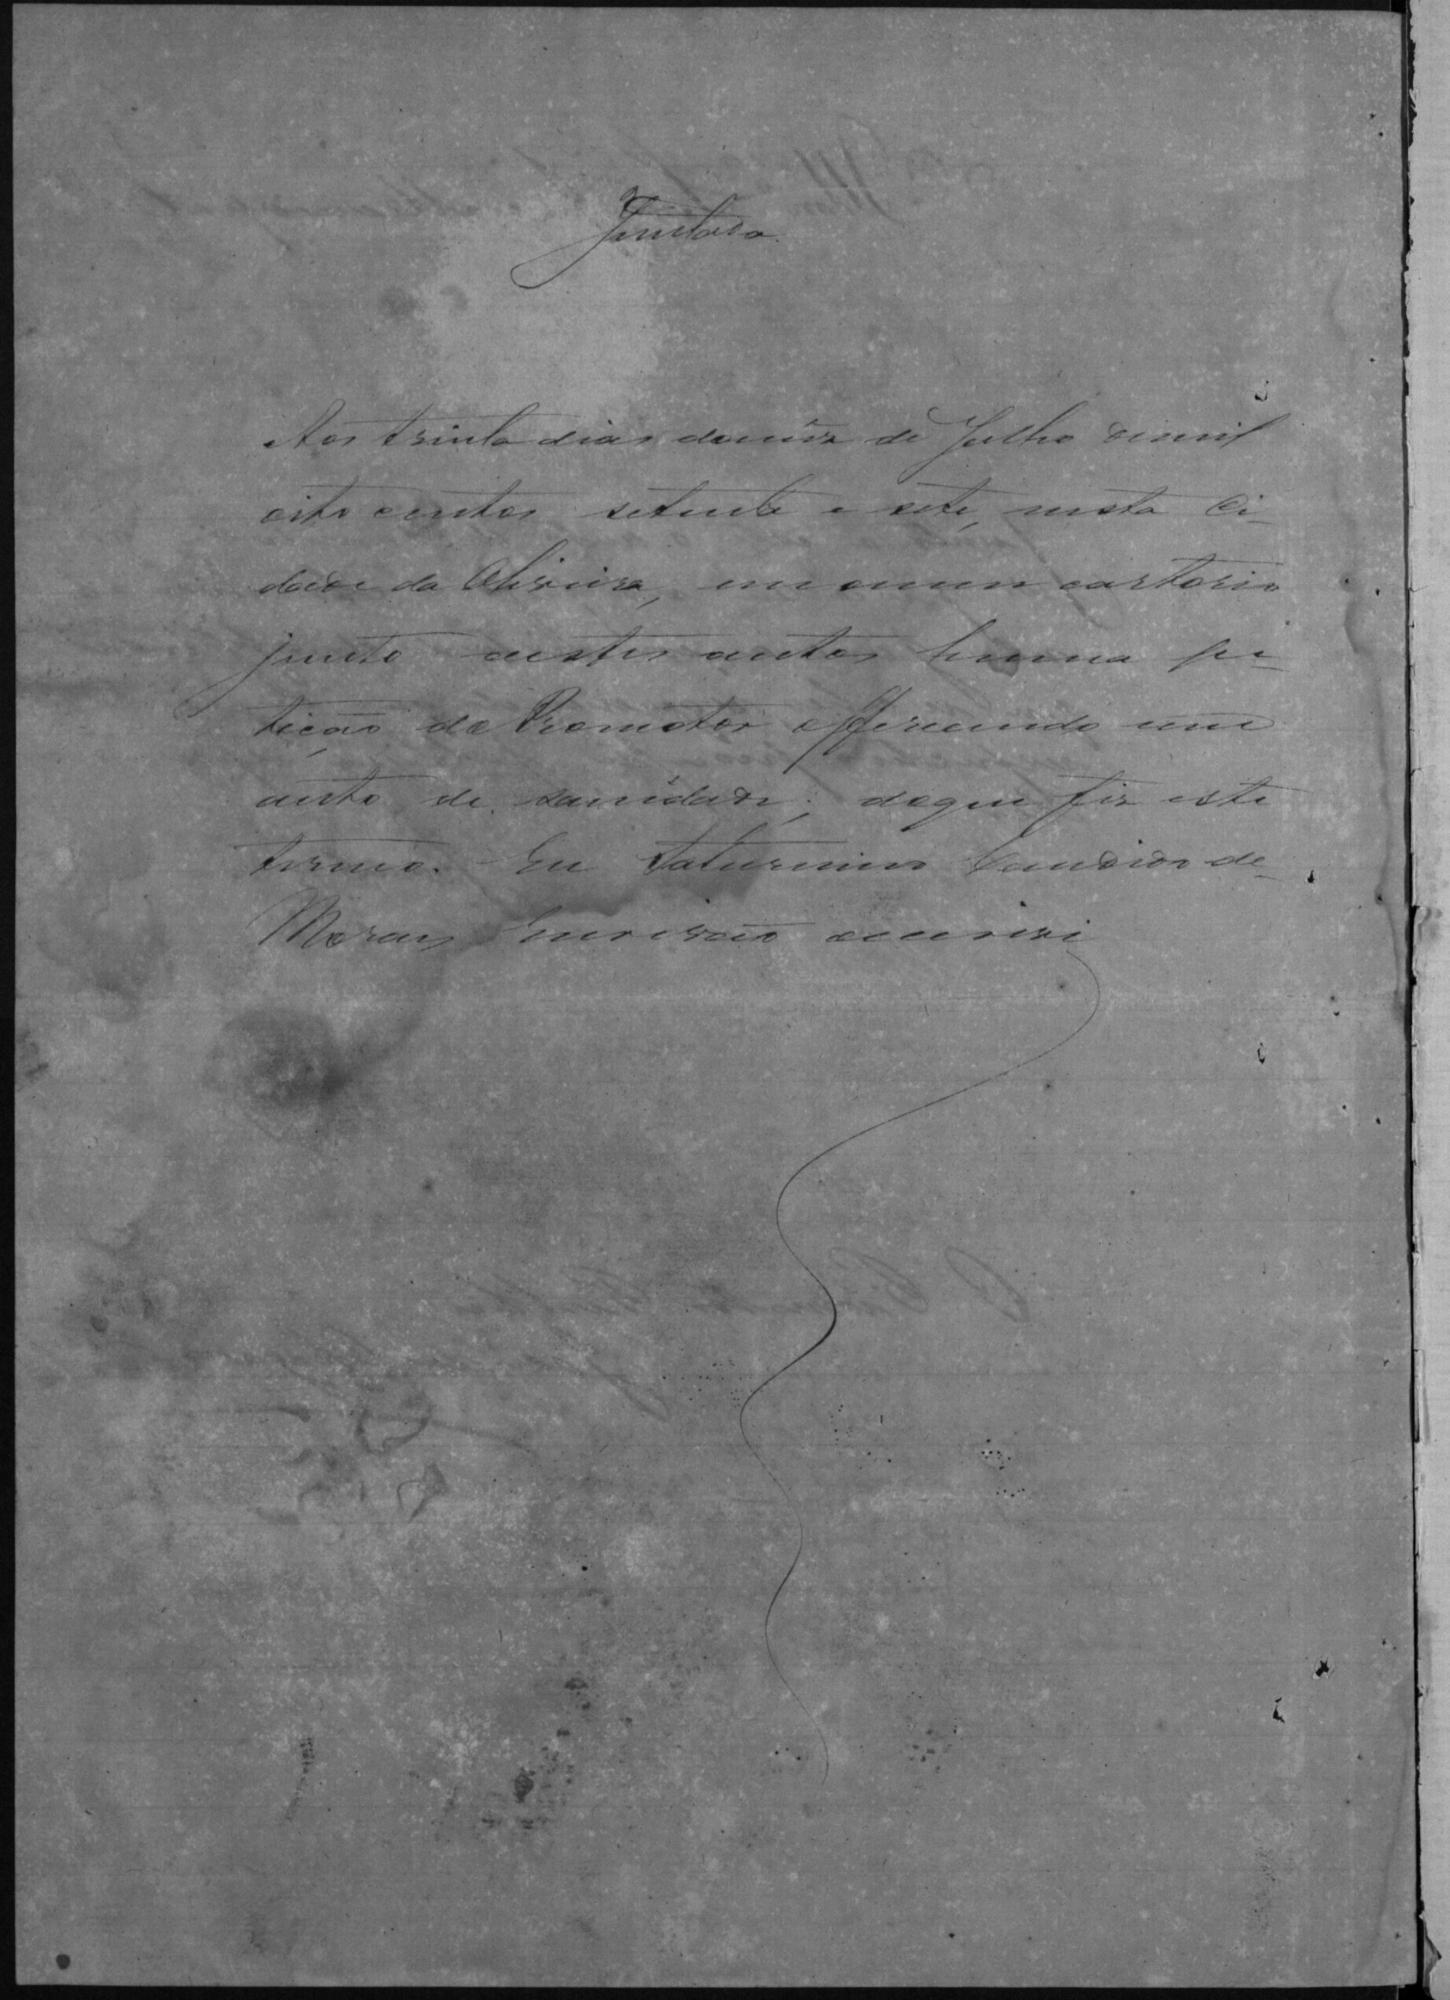 Juntada
Aos trinta dias do mêz de Julho de mil
oito centos setenta e sete, nesta Ci-
dade da Oliveira, em o meu cartorio
junto a estes autos huma pe-
tição do Promotor offerecendo um
auto de sanidade; do que fiz este
termo. Eu Saturnino Candido de
Moraes Escrivão escrivi